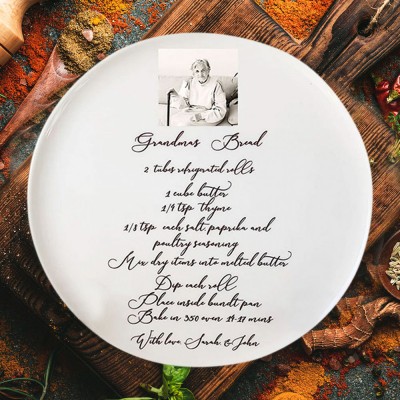 Grandmas Bread
2 tubes refrigrated rolls
1 cube butter
1/4 tsp thyme
1/8 tsp each salt, paprika and
poultry seasoning
Mix dry items into melted butter
Dip each roll
Place inside bundt pan
Bake in 350 even 14-17 mins
With love, Sarah & John